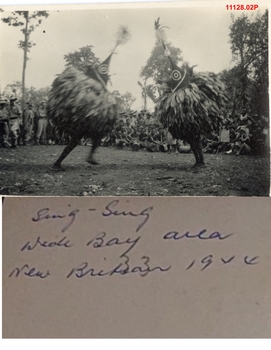 11128.02P
Sing-Sing
Wide Bay area
New Britain 1944